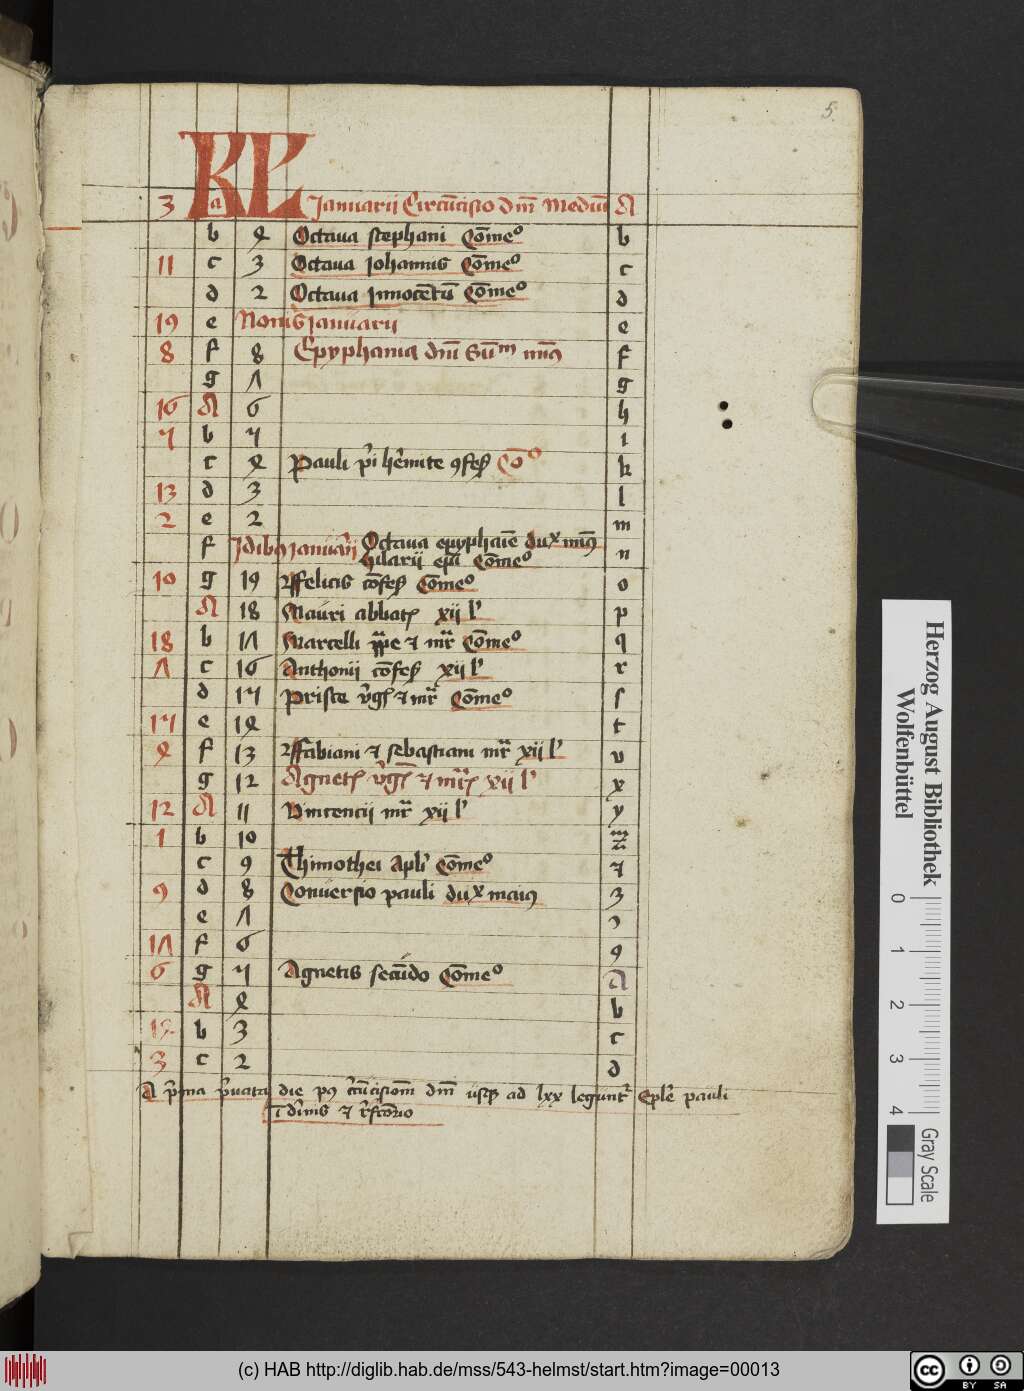 5
3 a KL Januarii Circu̅cisio dni̅ Mediu̅ A
b 4 Octaua stephani Co̅meo b
11 c 3 Octaua Johannis Co̅meo c
d 2 Octaua Jnnoce̅tu̅ Co̅meo d
19 e Nonis Januarii e
8 f 8 Epyphania dni̅ Su̅m f
g 7 g
16 A 6 h
5 b 5 i
c 4 Pauli p̅i he̅mite ꝯfes Co̅o k
13 d 3 l
2 e 2 m
f Jdibꝰ Januarii Octaua epyphaie̅ dux
hilarii epi̅ Co̅meo n
10 g 19 ffelicis co̅fes Co̅meo o
A 18 Mauri abbatis xii l p
18 b 17 Marcelli pp̅e ⁊ mr̅ Co̅meo q
7 c 16 Anthonii co̅fes xii l r
d 15 Prisce v̅gis ⁊ mr̅ Co̅meo s
15 e 14 t
4 f 13 ffabiani ⁊ sebastiani mr̅ xii l v
g 12 Agnetis v̅gis ⁊ mr̅is xii l x
12 A 11 Vincencii mr̅ xii l y
1 b 10 z
c 9 Thimothei apli̅ Co̅meo ⁊
9 d 8 Conuersio pauli dux maiꝰ 3
e 7 ꝯ
17 f 6 9
6 g 5 Agnetis secu̅do Co̅meo A
A 4 b
b 3 c
3 c 2 d
A p̅ma p̅uata die pꝰ c̅cu̅cisiom̅ dni̅ usq ad lxx legunt̅ Eple̅ pauli
Herzog August Bibliothek
Wolfenbüttel
0 1 2 3 4
Gray Scale
(c) HAB http://diglib.hab.de/mss/543-helmst/start.htm?image=00013
cc BY SA